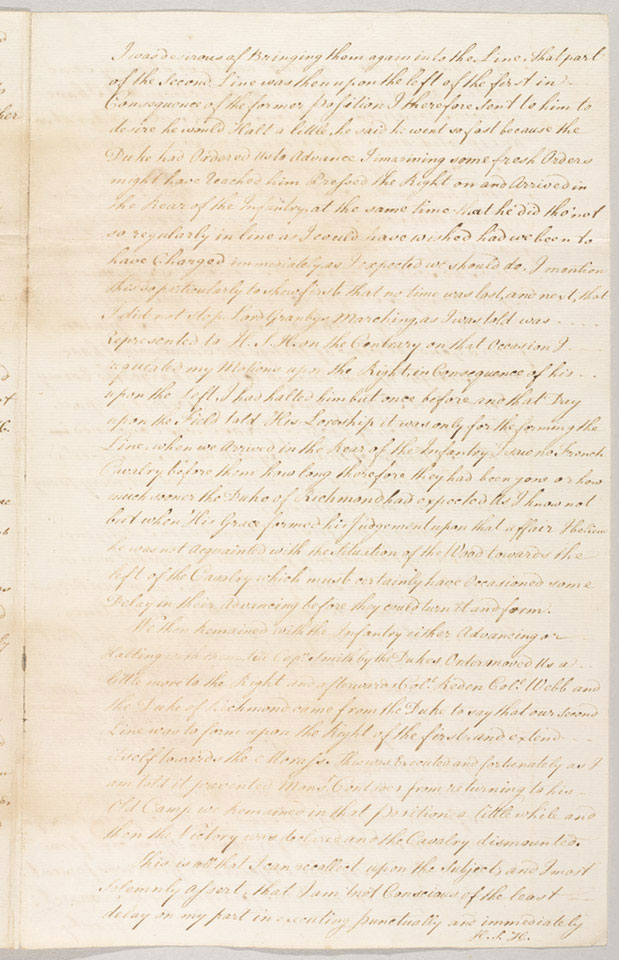 I was desirous of Bringing them again into the Line, that part
of the Second Line was then upon the left of the first in
Consequence of the former position I therefore sent to him to
desire he would Halt a little, he said he went so fast because the
Duke had Ordered Us to Advance I imagining some fresh Orders
might have reached him Pressed the Right on and Arrived in
the Rear of the Infantry, at the same time that he did tho' not
so regularly in line as I could have wished had we been to
have Charged immediately as I expected we should do. I mention
this so particularly to show first that no time was lost, and next, that
I did not stop Lord Granbys Marching, as I was told was
Represented to H. S. H. on the Contrary on that Occasion I
regulated my Motions upon the Right, in Consequence of his
upon the left. I had halted him but once before and that Day
upon the Field told His Lordship it was only for the forming the
Line. when we Arrived in the Rear of the Infantry I saw no French
Cavalry before them how long therefore they had been gone or how
much sooner the Duke of Richmond had expected Us I know not
but when His Grace formed his Judgement upon that affair I believe
he was not Acquainted with the Situation of the Wood towards the
left of the Cavalry which must certainly have Occasioned some
Delay in their Advancing before they could turn it and form.
We then remained with the Infantry either Advancing or
Halting with them, till Capt. Smith by the Dukes Order moved Us a
little more to the Right and afterwards Col. Reden Col. Webb and
the Duke of Richmond came from the Duke to say that our second
Line was to form upon the Right of the first, and extend
itself towards the Morass. This was Executed and fortunately as I
am told it prevented Mons. Contades from returning to his
Old Camp we remained in that position a little while and
then the Victory was declared and the Cavalry dismounted.
This is all that I can recollect upon the Subject, and I most
Solemnly Assert, that I am not Conscious of the least
delay on my part in executing punctually and immediately
H. S. H.